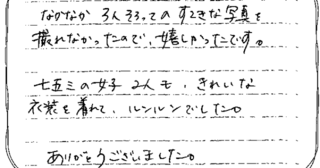 なかなか3人そろってのすてきな写真を
撮れなかったので、嬉しかったです。
七五三の女子2人も、きれいな
衣装を着れて、ルンルンでした。
ありがとうございました。